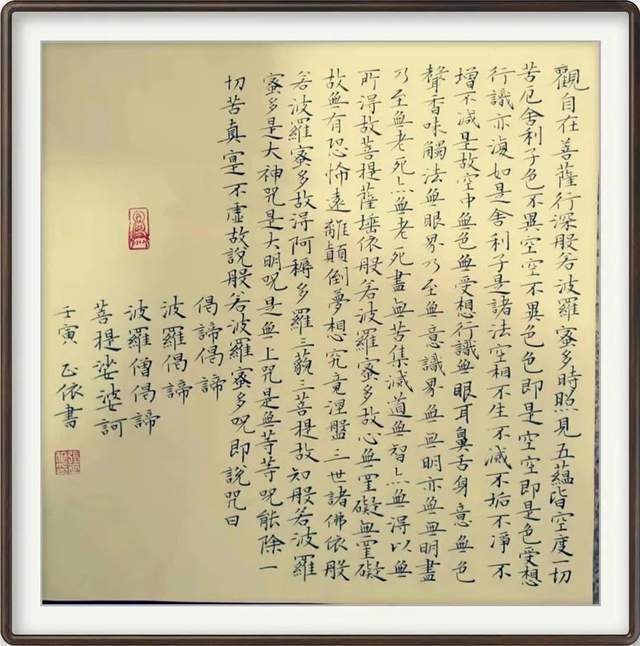 觀自在菩薩行深般若波羅蜜多時照見五蘊皆空度一切
苦厄舍利子色不異空空不異色色即是空空即是色受想
行識亦復如是舍利子是諸法空相不生不滅不垢不淨不
增不減是故空中無色無受想行識無眼耳鼻舌身意無色
聲香味觸法無眼界乃至無意識界無無明亦無無明盡
乃至無老死亦無老死盡無苦集滅道無智亦無得以無
所得故菩提薩埵依般若波羅蜜多故心無罣礙無罣礙
故無有恐怖遠離顛倒夢想究竟涅盤三世諸佛依般
若波羅蜜多故得阿耨多羅三藐三菩提故知般若波羅
蜜多是大神咒是大明咒是無上咒是無等等咒能除一
切苦真實不虛故說般若波羅蜜多咒即說咒曰
偈諦偈諦
波羅偈諦
波羅僧偈諦
菩提娑婆訶
壬寅 正依書